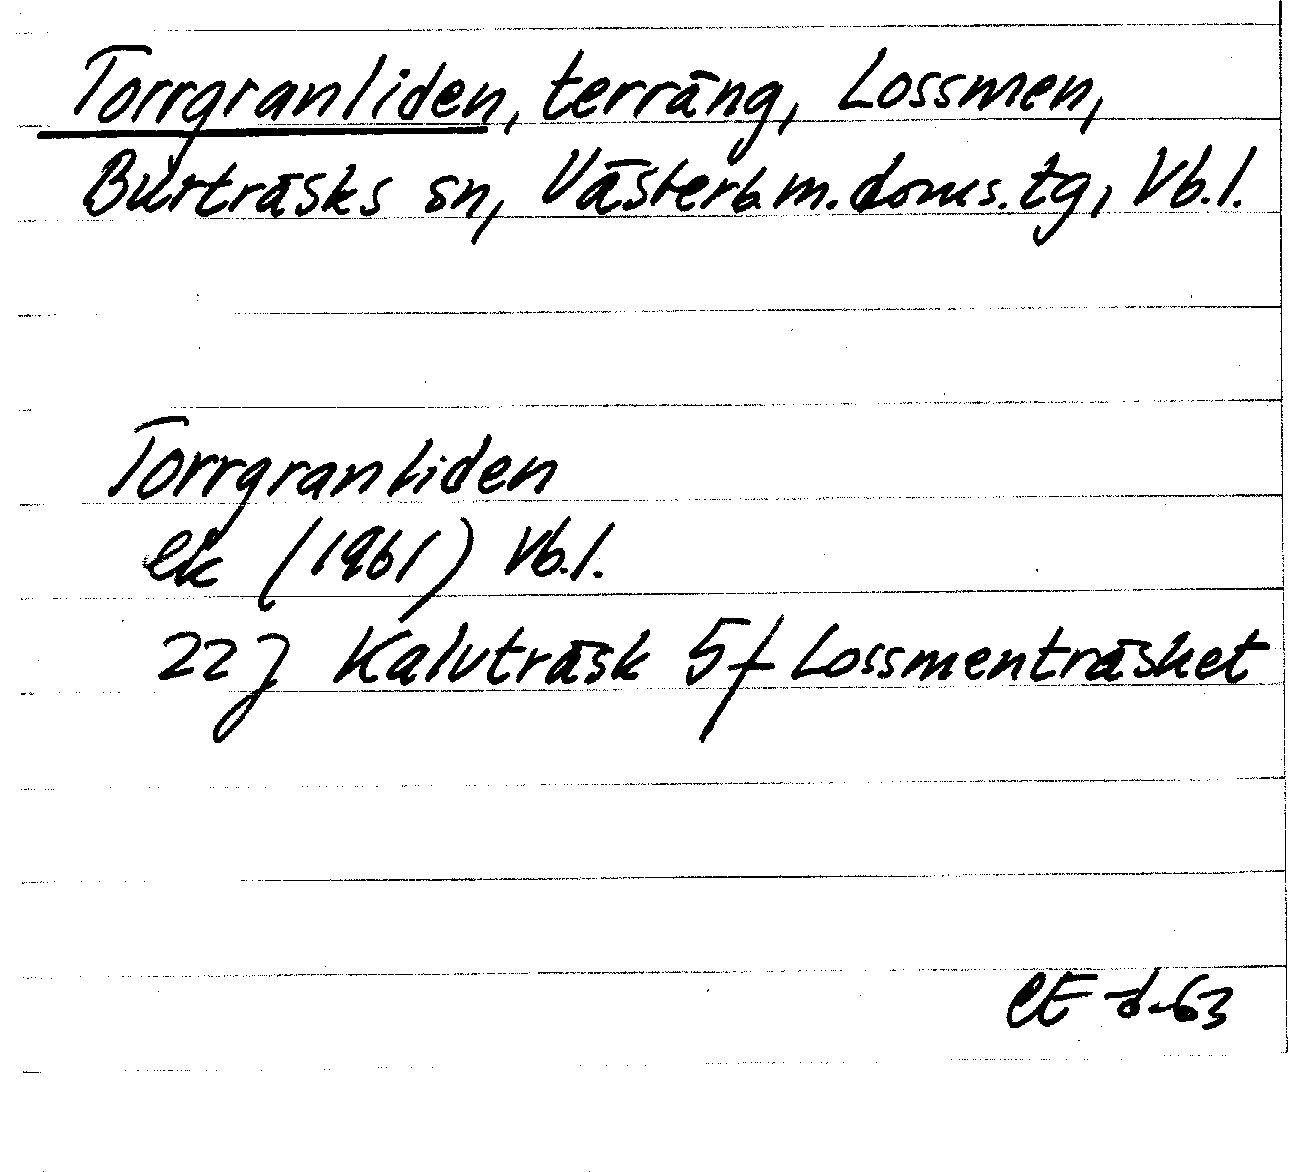 Torrgranliden, terräng, Lossmen,
Burträsks sn, Västerb.m.doms.tg, Vb.l.
Torrgranliden
ek (1961) Vb.l.
22 J Kalvträsk 5f Lossmenträsket
CE -d-63